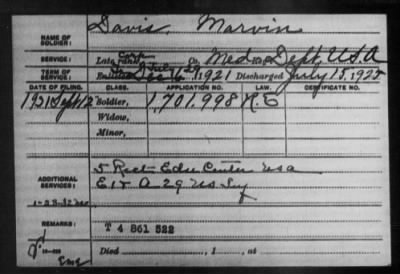 Davis, Marvin
NAME OF
SOLDIER:
SERVICE:
Late rank Corp Co. Med Dept, U.S.A
TERM OF
SERVICE:
Enlisted 1921 Discharged July 15, 1925
DATE OF FILING. CLASS. APPLICATION NO. LAW. CERTIFICATE NO.
1931 Sept 12 Soldier, 1,701,998 R.E
Widow,
Minor,
ADDITIONAL
SERVICES:
5 Rect Educ Center USA
E 15 A 29 US Inf
REMARKS:
T 4 861 522
Died , 1 , at